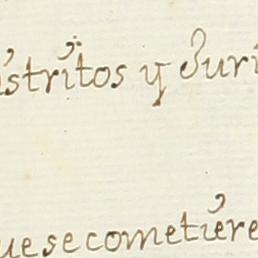 istritos y Juri
ue se cometiere